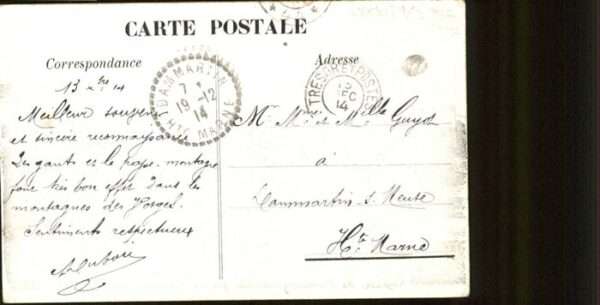 CARTE POSTALE
Correspondance
Adresse
13 Xbre 14
Meilleur souvenir
et sincère reconnaissance
Les gants et le passe-montagne
font très bon effet dans les
montagnes des Vosges.
Sentiments respectueux
DAMMARTIN
7
19 -12
14
HTE MARNE
TRESOR ET POSTES
DEC
14
M. Mme et Melle Guyot
à
Dammartin s. Meuse
Hte. Marne